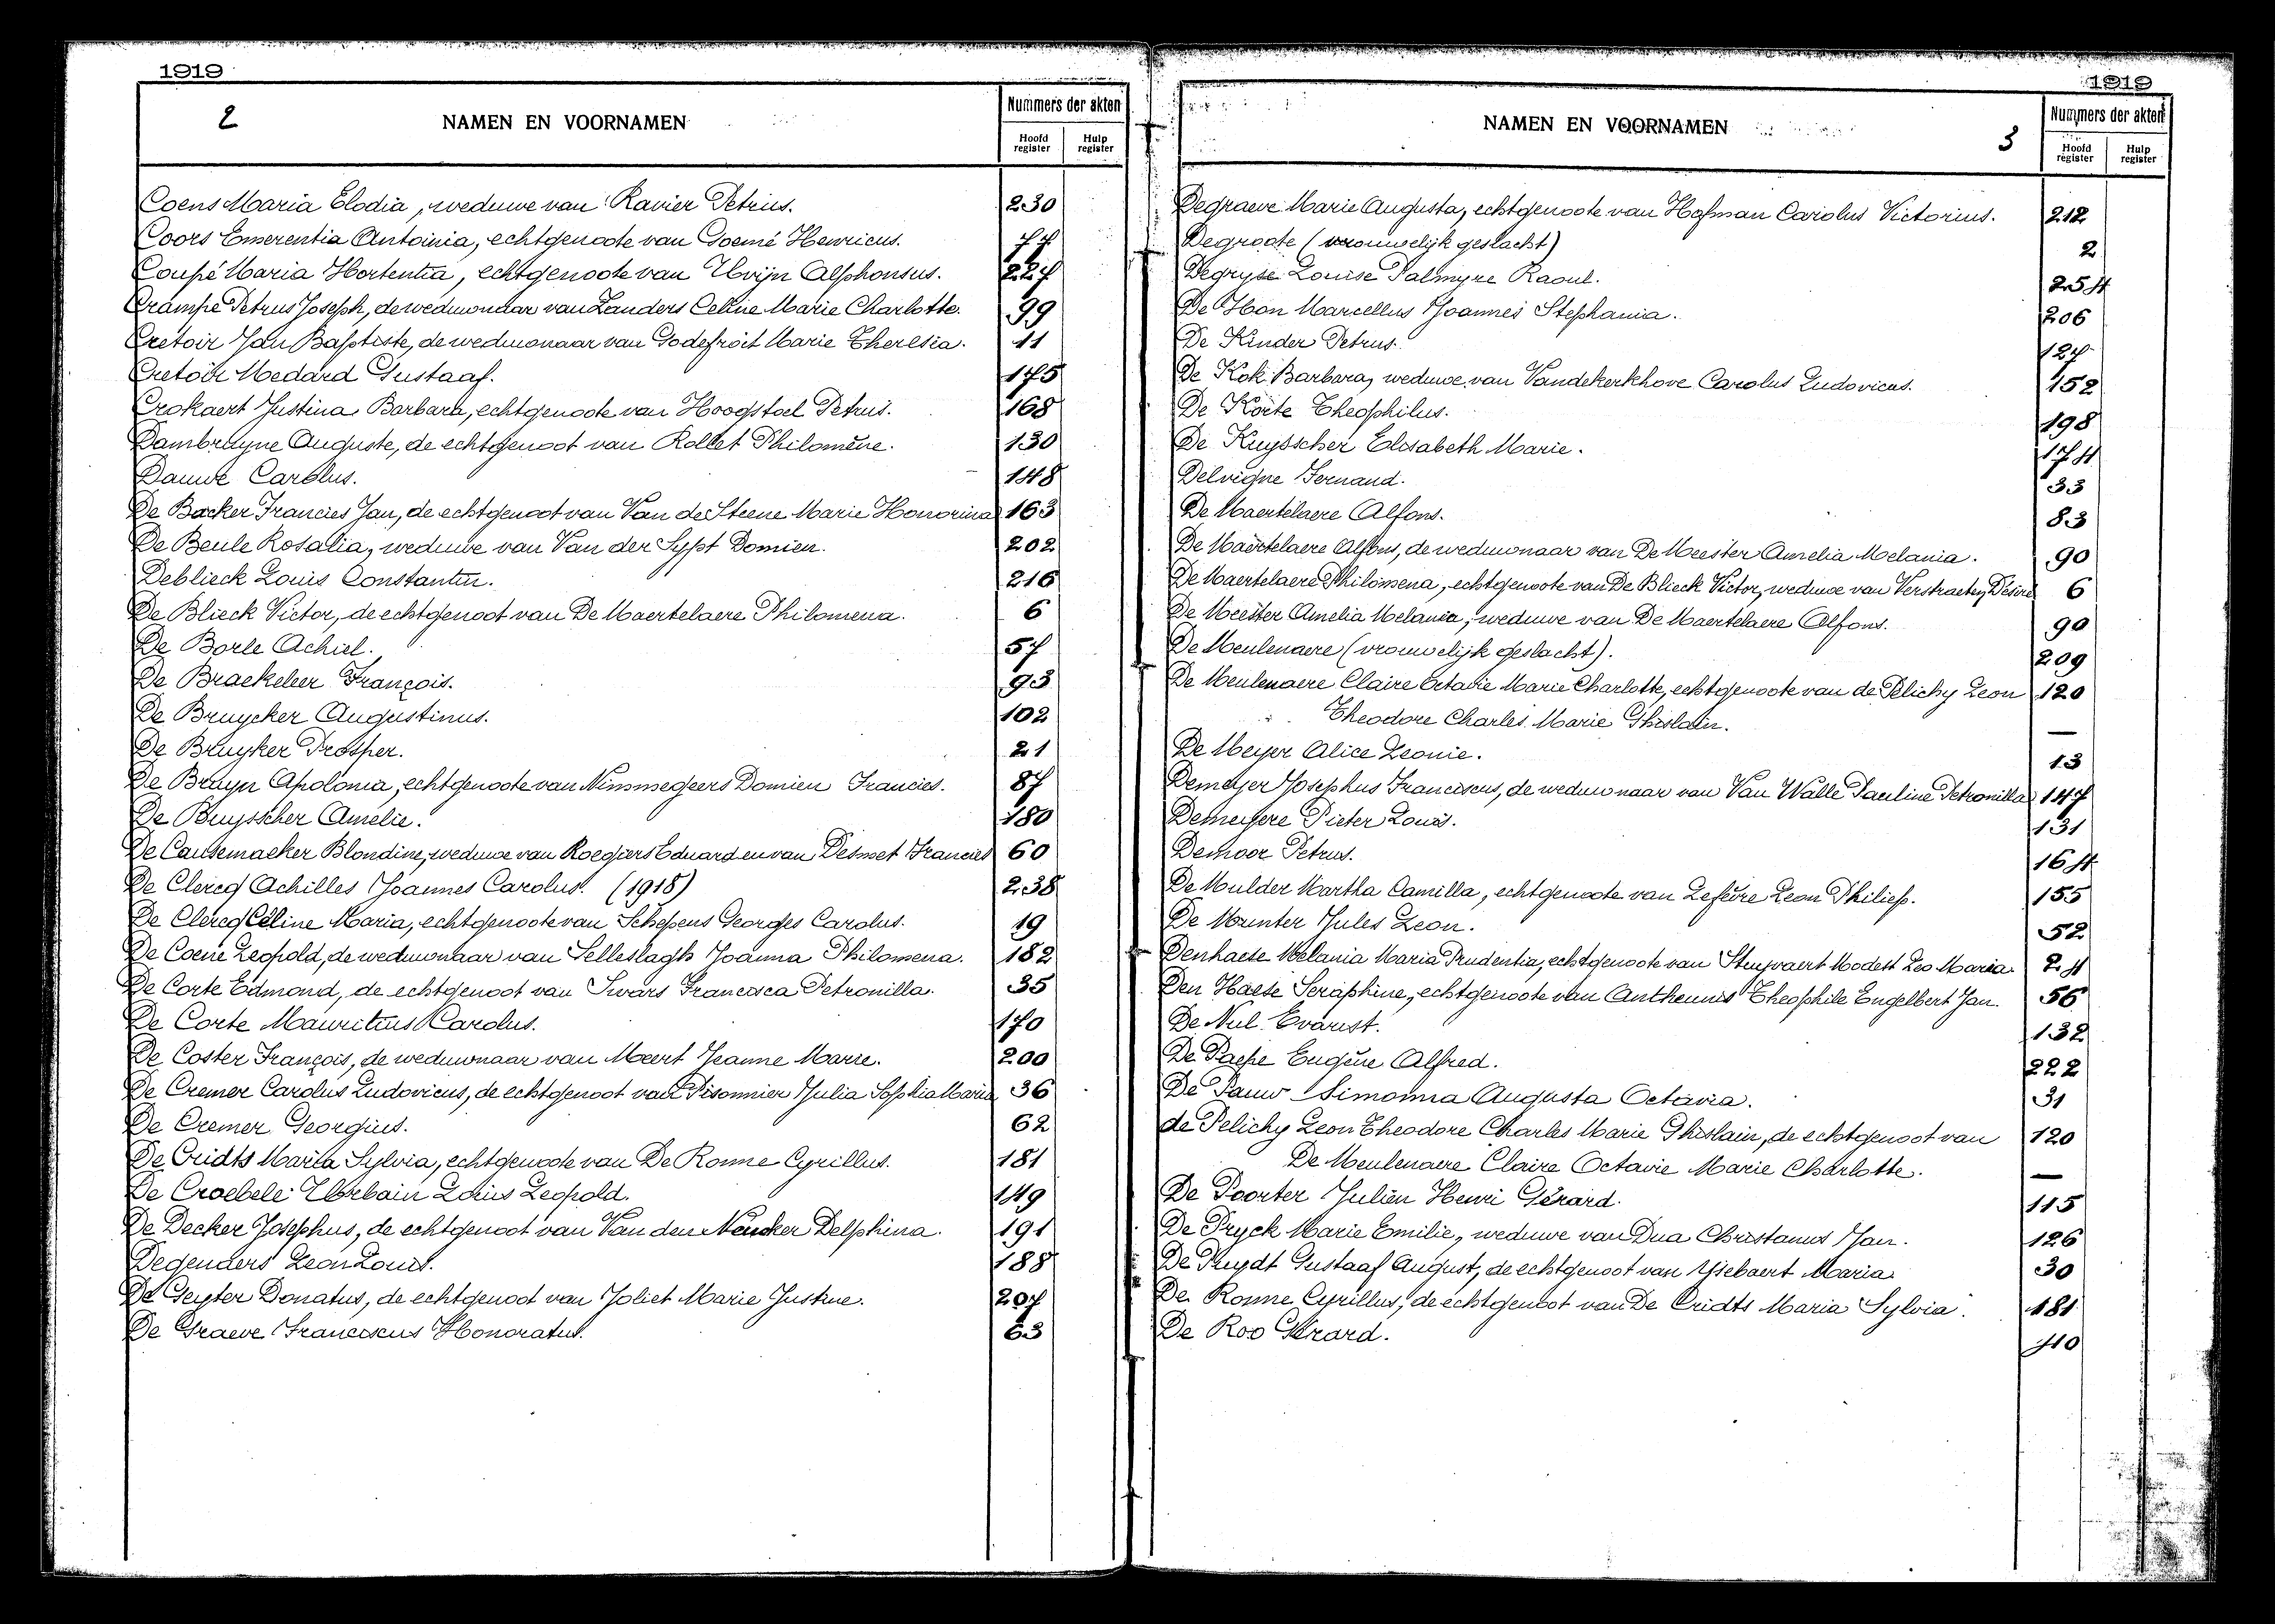 1919
2
NAMEN EN VOORNAMEN
Nummers der akten
Hoofd register
Hulp register
Coens Maria Elodia, weduwe van Ravier Petrus. 230
Coors Emerentia Antoinia, echtgenoote van Goemé Henricus. 77
Coupé Maria Hortentia, echtgenoote van Uvijn Alphonsus. 227
Crampe Petrus Joseph, de weduwnaar van Landers Celine Marie Charlotte. 99
Cretoir Jan Baptiste, de weduwnaar van Godefroit Marie Theresia. 11
Cretoir Medard Gustaaf. 175
Crokaert Justina Barbara, echtgenoote van Hoogstoel Petrus. 168
Dambruyne Auguste, de echtgenoot van Rollet Philomène. 130
Dauwe Carolus. 148
De Backer Francies Jan, de echtgenoot van Van de Steene Marie Honorina 163
De Beule Rosalia, weduwe van Van der Sypt Domien. 202
Deblieck Louis Constantin. 216
De Blieck Victor, de echtgenoot van De Maertelaere Philomena. 6
De Borle Achiel. 57
De Braekeleer François. 93
De Bruycker Augustinus. 102
De Bruyker Prosper. 21
De Bruyn Apolonia, echtgenoote van Nimmegeers Domien Francies. 87
De Buysscher Amelie. 180
De Causemaeker Blondine, weduwe van Roegiers Eduard en van Desmet Francies 60
De Clercq Achilles Joannes Carolus. (1918) 238
De Clercq Céline Maria, echtgenoote van Schepens Georges Carolus. 19
De Coene Leopold, de weduwnaar van Selleslagh Joanna Philomena. 182
De Corte Edmond, de echtgenoot van Swars Francisca Petronilla. 35
De Corte Mauritius Carolus. 170
De Coster François, de weduwnaar van Meert Jeanne Marie. 200
De Cremer Carolus Ludovicus, de echtgenoot van Pisonnier Julia Sophia Maria 36
De Cremer Georgius. 62
De Cridts Maria Sylvia, echtgenoote van De Ronne Cyrillus. 181
De Croebele Urbain Louis Leopold. 149
De Decker Josephus, de echtgenoot van Van den Neucker Delphina. 191
Degenders Leon Louis. 188
De Geyter Donatus, de echtgenoot van Joliet Marie Justine. 207
De Graeve Franciscus Honoratus. 63
1919
NAMEN EN VOORNAMEN
3
Nummers der akten
Hoofd register
Hulp register
Degraeve Marie Augusta, echtgenoote van Hofman Carolus Victorius. 212
Degroote (vrouwelijk geslacht) 2
Degryse Louise Palmyre Raoul. 254
De Hon Marcellus Joannes Stephania. 206
De Kinder Petrus. 127
De Kok Barbara, weduwe van Vandekerkhove Carolus Ludovicus. 152
De Korte Theophilus. 198
De Kuysscher Elisabeth Marie. 174
Delvigne Fernand. 33
De Maertelaere Alfons. 83
De Maertelaere Alfons, de weduwnaar van De Meester Amelia Melania. 90
De Maertelaere Philomena, echtgenoote van De Blieck Victor, weduwe van Verstraeten Désiré 6
De Meester Amelia Melania, weduwe van De Maertelaere Alfons. 90
De Meulenaere (vrouwelijk geslacht). 209
De Meulenaere Claire Octavie Marie Charlotte, echtgenoote van de Pélichy Leon 120
Theodore Charles Marie Ghislain. —
De Meyer Alice Leonie. 13
Demeyer Josephus Franciscus, de weduwnaar van Van Walle Pauline Petronilla 147
Demeyere Pieter Louis. 131
Demoor Petrus. 164
De Mulder Martha Camilla, echtgenoote van Lefèvre Leon Philiep. 155
De Munter Jules Leon. 52
Denhaese Melania Maria Prudentia, echtgenoote van Stuyvaert Modest Leo Maria. 24
Den Haese Seraphine, echtgenoote van Antheunis Theophile Engelbert Jan. 56
De Nul Evarist. 132
De Paepe Eugène Alfred. 222
De Pauw Simonna Augusta Octavia. 31
de Pelichy Leon Theodore Charles Marie Ghislain, de echtgenoot van 120
De Meulenaere Claire Octavie Marie Charlotte. —
De Poorter Julien Henri Gérard. 115
De Pryck Marie Emilie, weduwe van Dua Christanus Jan. 126
De Puydt Gustaaf August, de echtgenoot van Ysebaert Maria 30
De Ronne Cyrillus, de echtgenoot van De Cridts Maria Sylvia. 181
De Roo Gérard. 110